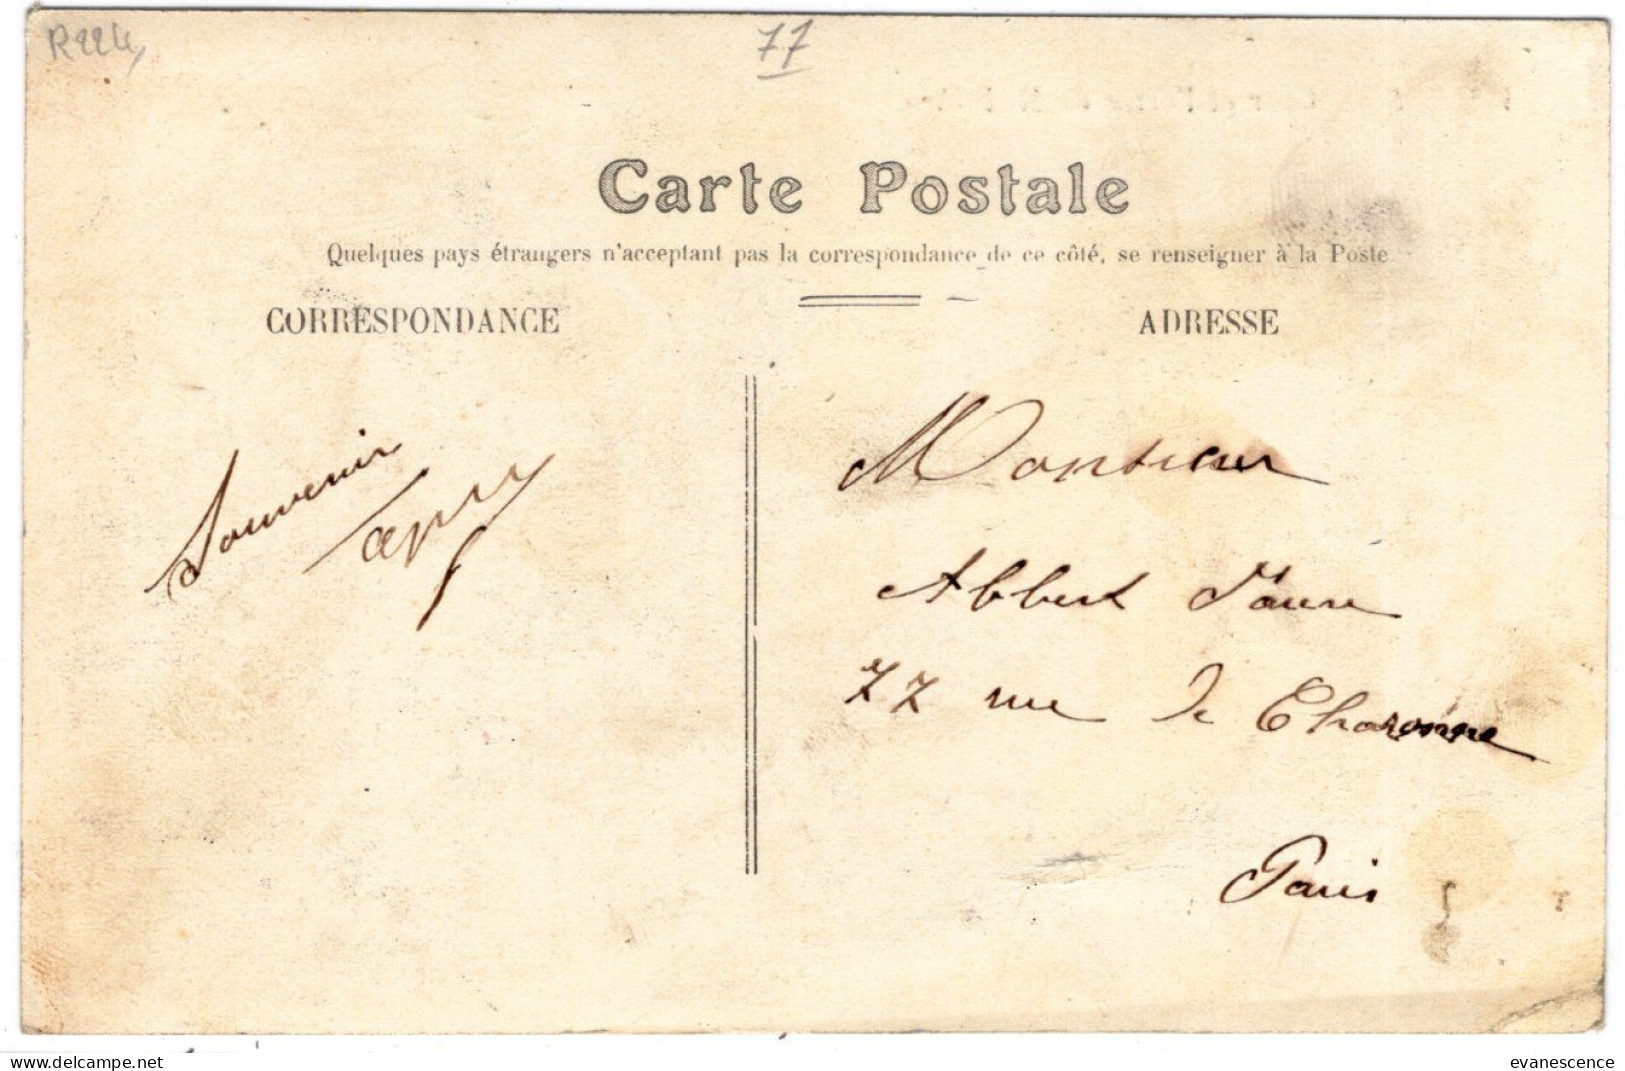 R224
77
Carte Postale
Quelques pays étrangers n'acceptant pas la correspondance de ce côté, se renseigner à la Poste
CORRESPONDANCE
ADRESSE
Souvenir
Monsieur
Albert
77 rue de Charonne
Paris
evanescence
www.delcampe.net